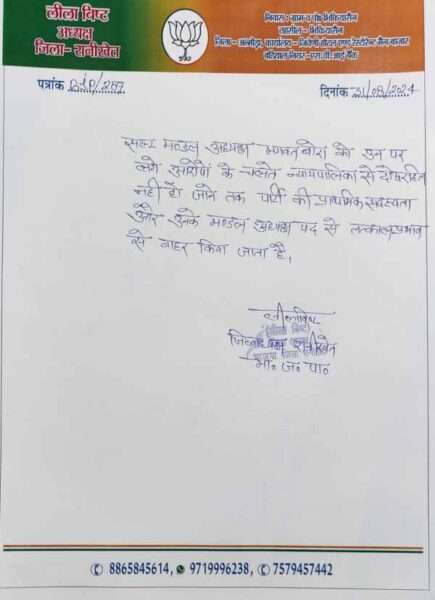 लीला बिष्ट
अध्यक्ष
जिला- रानीखेत
निवास : ग्राम व पो० भिकियासैंण
तहसील - भिकियासैंण
जिला - अल्मोड़ा, कार्यालय - त्रिवेणी होटल एण्ड रेस्टोरेन्ट मैन बाजार
पत्रांक BJP/287
दिनांक 31/08/2024
सल्ट मण्डल अध्यक्ष भगवत बोरा को उन पर
लगे आरोपों के चलते न्यायपालिका से दोषरहित
नहीं हो जाने तक पार्टी की प्राथमिक सदस्यता
और उनके मण्डल अध्यक्ष पद से तत्काल प्रभाव
से बाहर किया जाता है।
लीला बिष्ट
रानीखेत
भा० ज० पा०
8865845614, 9719996238, 7579457442